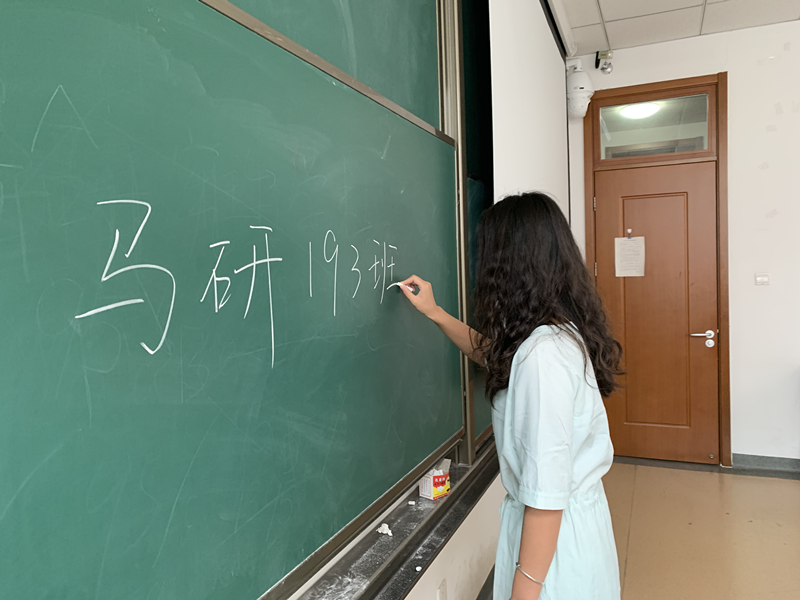 马研193班